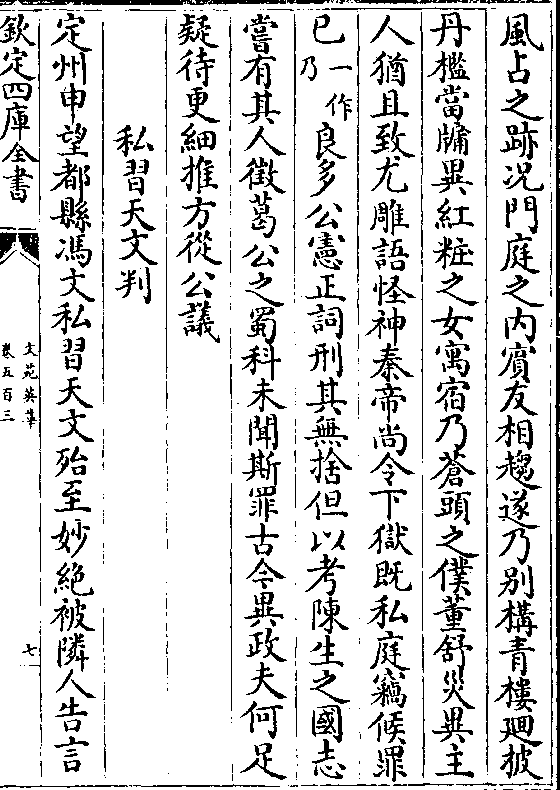 風占之跡况門庭之内賓友相趨遂乃别構青樓廻披
丹檻當牖異紅粧之女寓宿乃蒼頭之僕董舒災異主
人猶且致尤雕語怪神秦帝尚令下獄既私庭竊候罪
已一作乃良多公憲正詞刑其無捨但以考陳生之國志
嘗有其人徴葛公之蜀科未聞斯罪古今異政夫何足
疑待更細推方從公議
私習天文判
定州申望都縣馮文私習天文殆至妙絶被隣人告言
欽定四庫全書
文苑英華
卷五百三
七